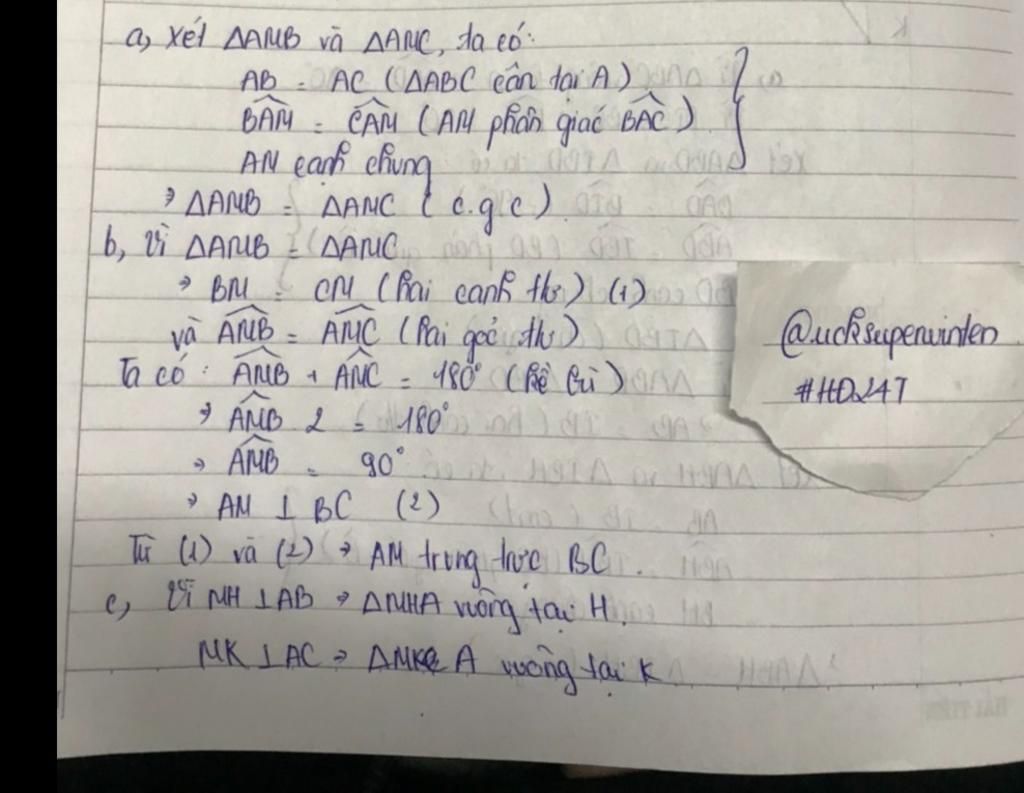 a, Xét ΔAMB và ΔAMC, ta có:
AB = AC (ΔABC cân tại A)
BÂM = CÂM (AM phân giác BÂC)
AM cạnh chung
⇒ ΔAMB = ΔAMC (c.g.c)
b, Vì ΔAMB = ΔAMC
⇒ BM = CM (hai cạnh tư) (1)
và AM̂B = AM̂C (hai góc tư)
Ta có: AM̂B + AM̂C = 180° (kề bù)
⇒ AM̂B 2 = 180°
⇒ AM̂B = 90°
⇒ AM ⊥ BC (2)
Từ (1) và (2) ⇒ AM trung trực BC.
c, Vì MH ⊥ AB ⇒ ΔMHA vuông tại H.
MK ⊥ AC ⇒ ΔMKA vuông tại K
#HD247